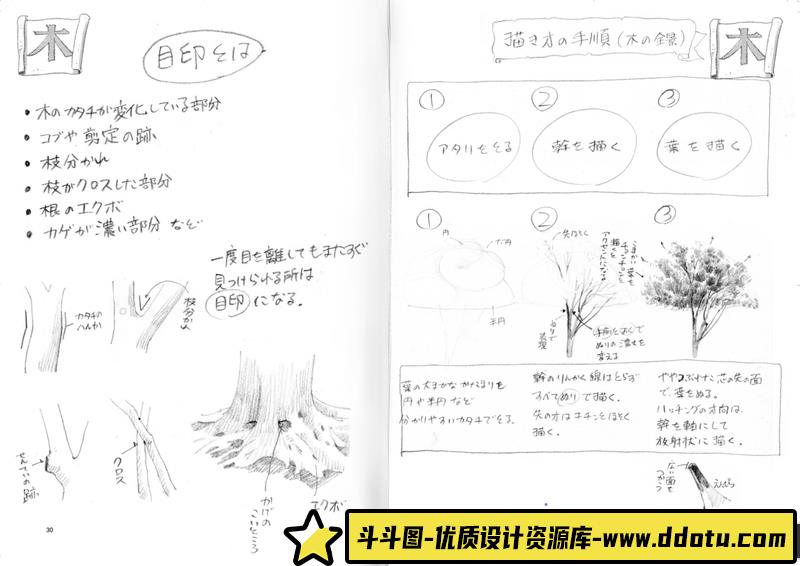 木
目印とは
・木のカタチが変化している部分
・コブや剪定の跡
・枝分かれ
・枝がクロスした部分
・根のエクボ
・カゲが濃い部分 など
一度目を離してもまたすぐ
見つけられる所は
目印になる。
カタチの
へんか
枝分かれ
せんていの跡
クロス
かげの
こいところ
エクボ
30
描き方の手順(木の全景)
木
① ② ③
アタリをとる 幹を描く 葉を描く
① ② ③
円
だ円
半円
先ほそく
アクセントになる
ぬりで
表現
ぬりの濃さを
変える
こまかい葉を
チョンチョンと
描くと
葉の大まかなかたまりを
円や半円など
分かりやすいカタチでとる。
幹のりんかく線はとらず
すべてぬりで描く。
先の方はキチンとほそく
描く。
ややつぶれた芯の先の面
で、葉をぬる。
ハッチングの方向は、
幹を軸にして
放射状に描く。
広い面を
つかう
えんぴつ
斗斗图-优质设计资源库-www.ddotu.com